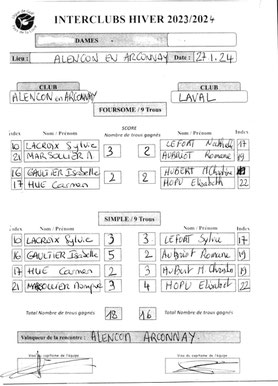 INTERCLUBS HIVER 2023/2024
DAMES
Lieu : ALENCON EN ARCONNAY Date : 27.1.24
CLUB CLUB
ALENCON EN ARCONNAY LAVAL
FOURSOME / 9 Trous
SCORE
Index Nom / Prénom Nombre de trous gagnés Nom / Prénom Index
16 LACROIX Sylvie LEFORT 17
21 MARSOLLIER M 3 2 AUBRIOT Romane 19
16 GAULTIER Isabelle HUBERT M Christine
17 HUE Carmen 2 2 HOPU Elisabeth 22
SIMPLE / 9 Trous
Index Nom / Prénom Nombre de trous gagnés Nom / Prénom Index
16 LACROIX Sylvie 3 3 LEFORT Sylvie 17
16 GAULTIER Isabelle 5 2 AUBRIOT Romane 19
17 HUE Carmen 2 3 HUBERT M Christine 19
21 MARSOLLIER Monique 3 4 HOPU Elisabeth 22
Total Nombre de trous gagnés 18 16 Total Nombre de trous gagnés
Vainqueur de la rencontre : ALENCON ARCONNAY
Visa du capitaine de l'équipe Visa du capitaine de l'équipe